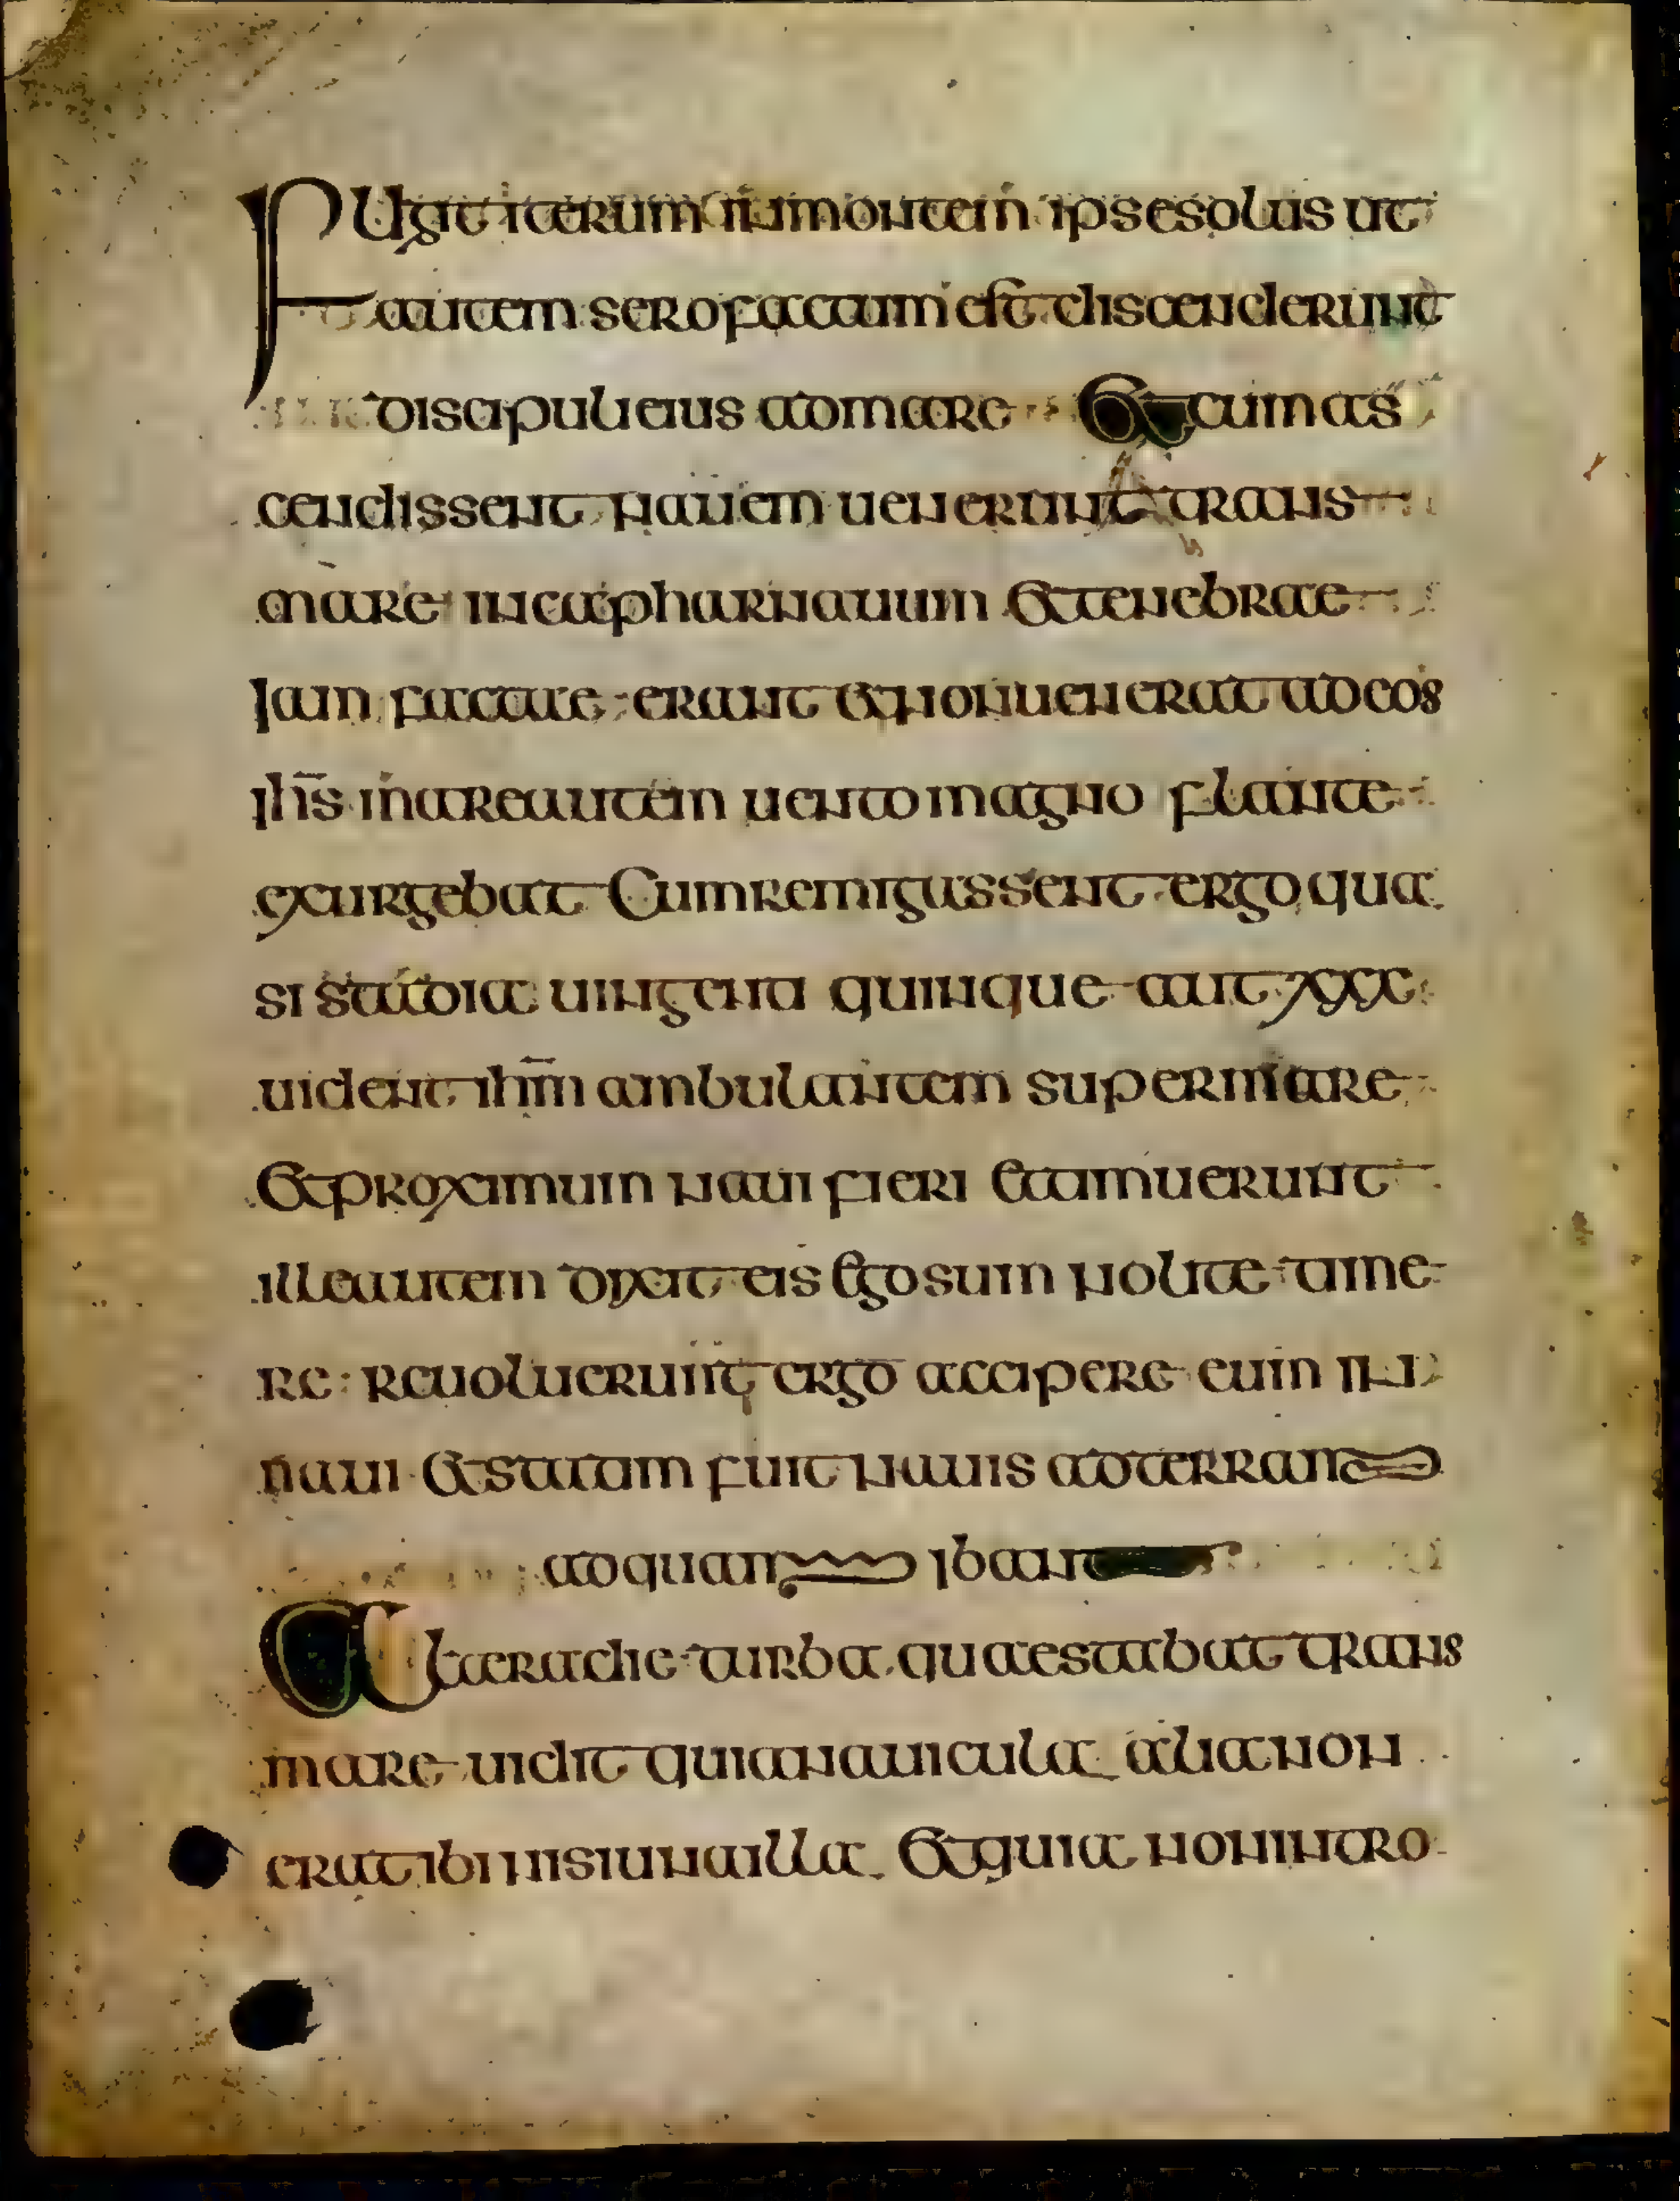 Fugit iterum in montem ipse solus ut
autem sero factum est discenderunt
discipuli eius ad mare Et cum as
cendissent nauem uenerunt trans
mare in capharnauum Et tenebrae
Iam factae erant et non uenerat ad eos
ihs mare autem uento magno flante
exurgebat Cum remigassent ergo qua
si stadia uingenti quinque aut xxx
uident ihm ambulantem super mare
Et proximum naui fieri Et timuerunt
ille autem dixit eis Ego sum nolite time
re: Reuoluerunt ergo accipere eum in
naui Et statim fuit nauis ad terram
ad quam ibant
Altera die turba quae stabat trans
mare uidit quia nauicula alia non
erat ibi nisi una illa Et quia non intro